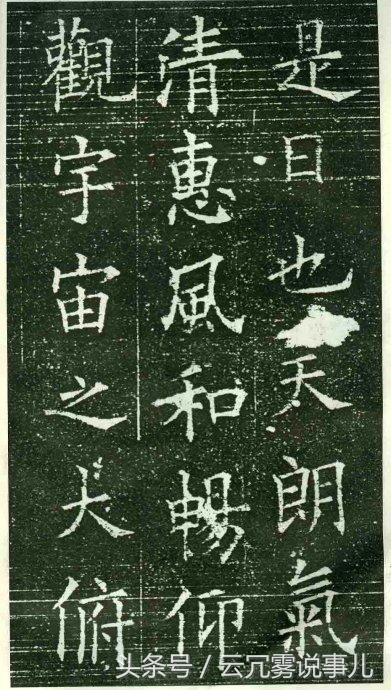 是日也天朗氣
清惠風和暢仰
觀宇宙之大俯
头条号/云冗雾说事儿